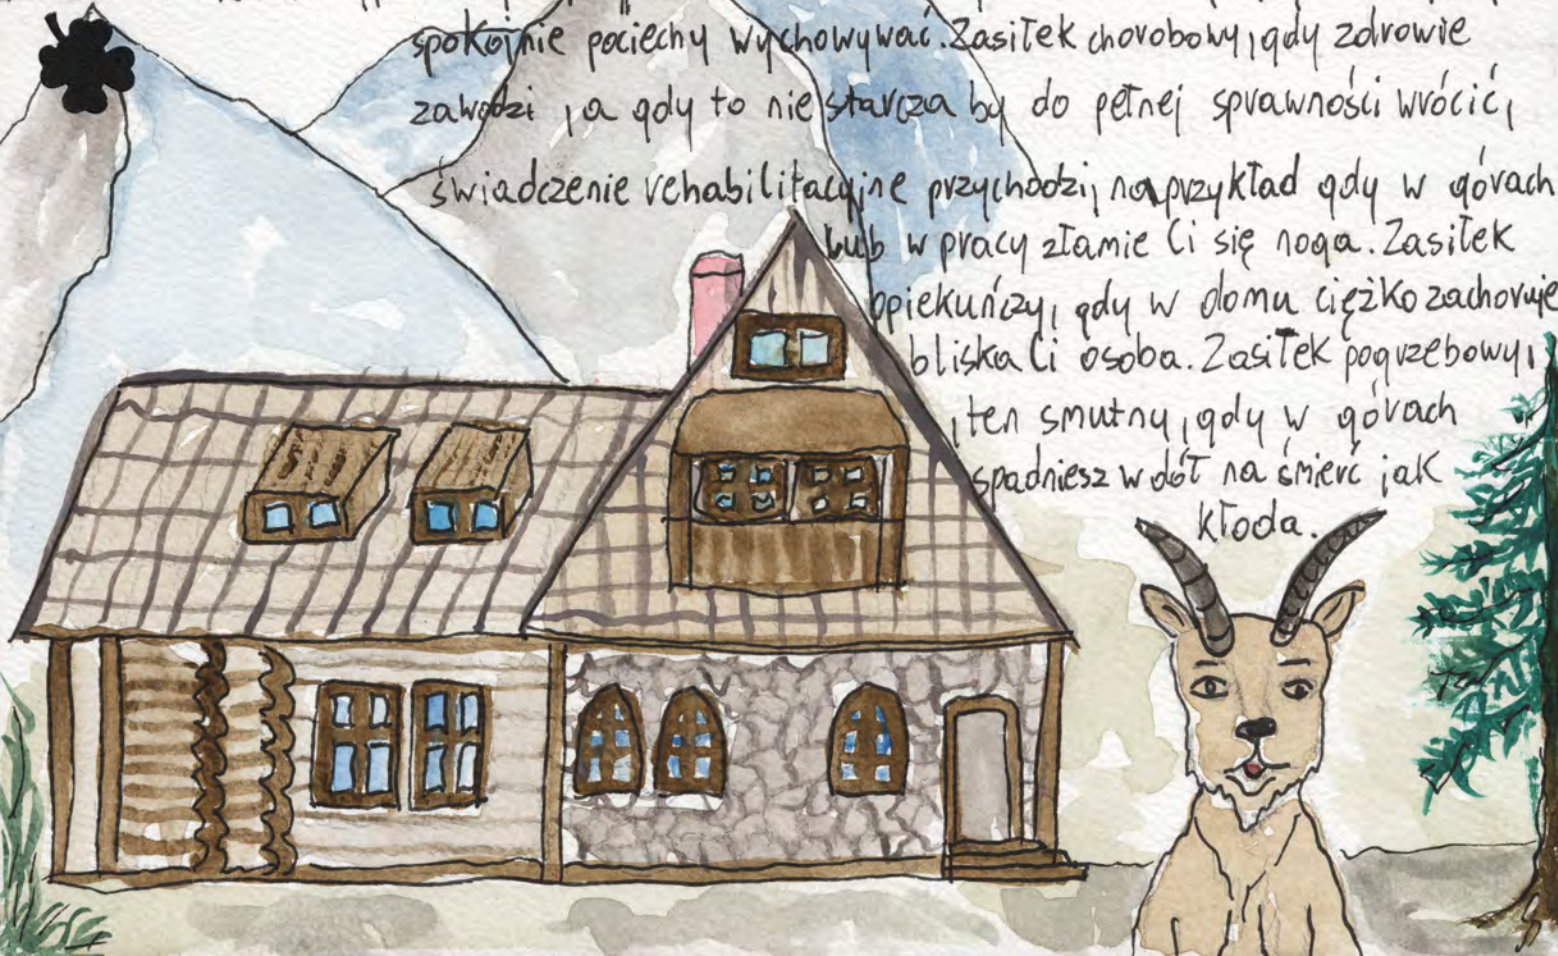 spokojnie pociechy wychowywać. Zasiłek chorobowy, gdy zdrowie
zawodzi, a gdy to nie starcza by do pełnej sprawności wrócić,
świadczenie rehabilitacyjne przychodzi, na przykład gdy w górach
lub w pracy złamie Ci się noga. Zasiłek
opiekuńczy, gdy w domu ciężko zachoruje
bliska Ci osoba. Zasiłek pogrzebowy,
, ten smutny, gdy w górach
spadniesz w dół na śmierć jak
kłoda.